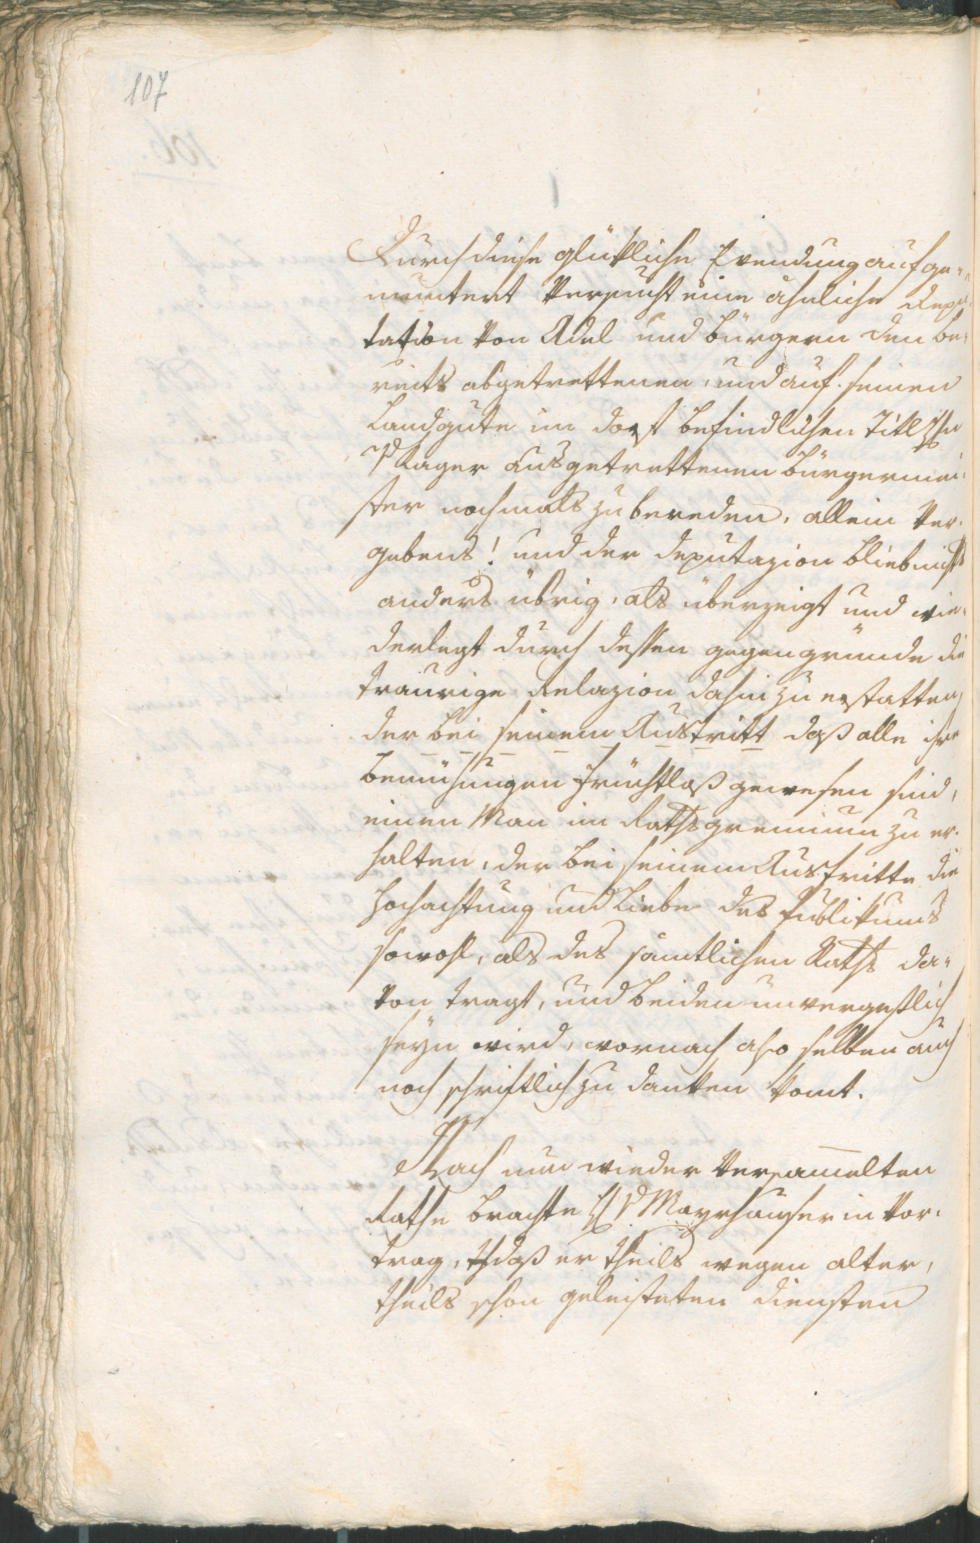 107
Durch diese glückliche Sendung aufge-
muntert versucht eine ähnliche Depu-
tation von Adel und Bürgern den be-
reits abgetrettenen, und auf seinen
Landgute im dorf befindlichen Titl H:
v Plager ausgetrettenen Bürgermei-
ster nochmals zu bereden, allein ver-
gebens! und der Deputazion blieb nichts
anders übrig, als überzeigt und wie-
derlegt durch dessen gegengründe die
traurige Relazion dahin zu erstatten,
der bei seinem Austritt daß alle ihre
bemühungen fruchtloß gewesen sind,
einen Man im Rathsgremium zu er-
halten, der bei seinem Austritte die
Hochachtung und Liebe des Publikums
sowohl, als des sämtlichen Raths da-
von tragt, und beiden unvergeßlich
seyn wird, wornach also selben auch
noch schriftlich zu danken komt.
Nach nun wieder versamelten
Rathe brachte H v Mayrhauser in Vor-
trag, daß er theils wegen alter,
theils schon geleisteten Diensten